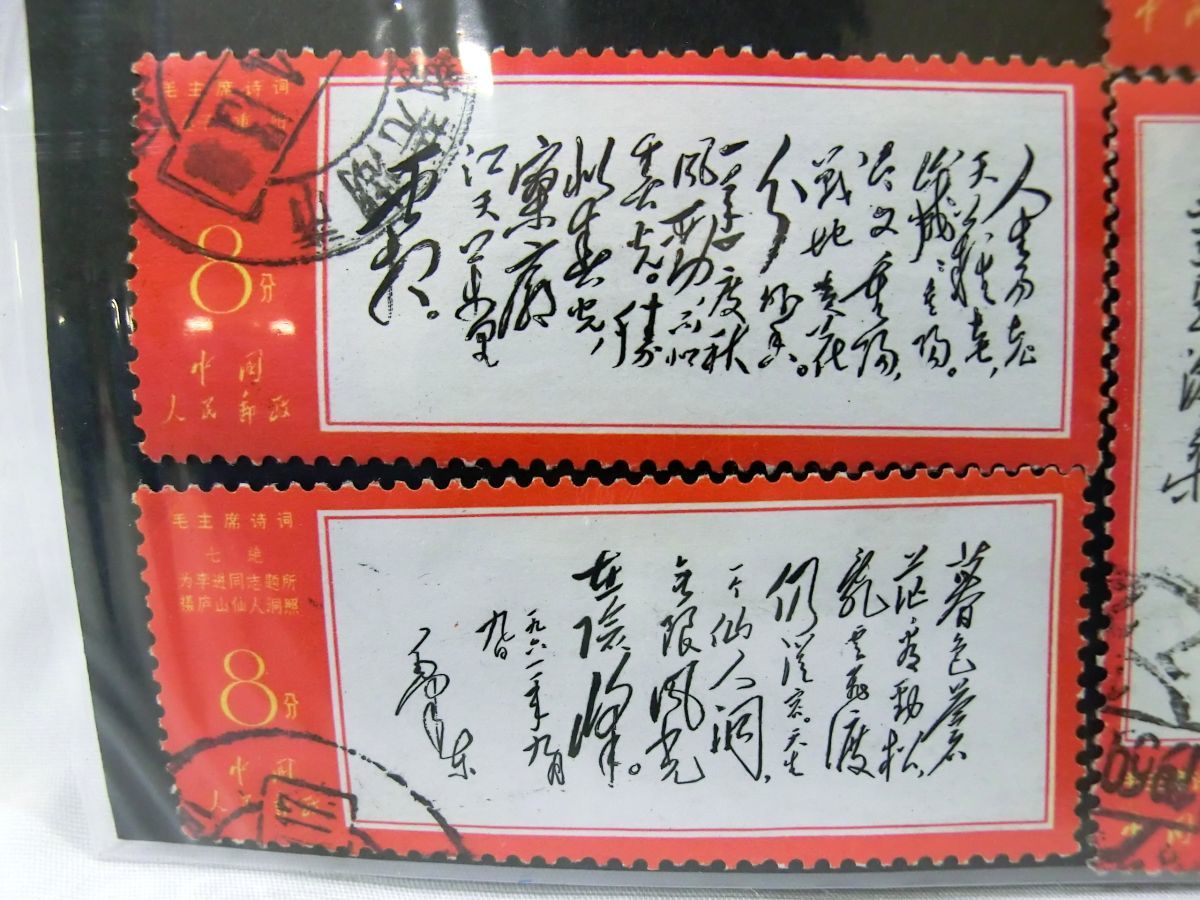 毛主席诗词
8分
中国
人民邮政
人生易老
天難老，
歲歲重陽。
今又重陽，
戰地黃花
分外香。
一年一度秋
風勁，不似
春光。勝
似春光，
寥廓
江天萬里
霜。
毛主席诗词
七绝
为李进同志题所
摄庐山仙人洞照
8分
中国
人民邮政
暮色蒼
茫看勁松，
亂雲飛渡
仍從容。天生
一个仙人洞，
無限風光
在險峰。
一九六一年九月
九日
毛澤東
中国